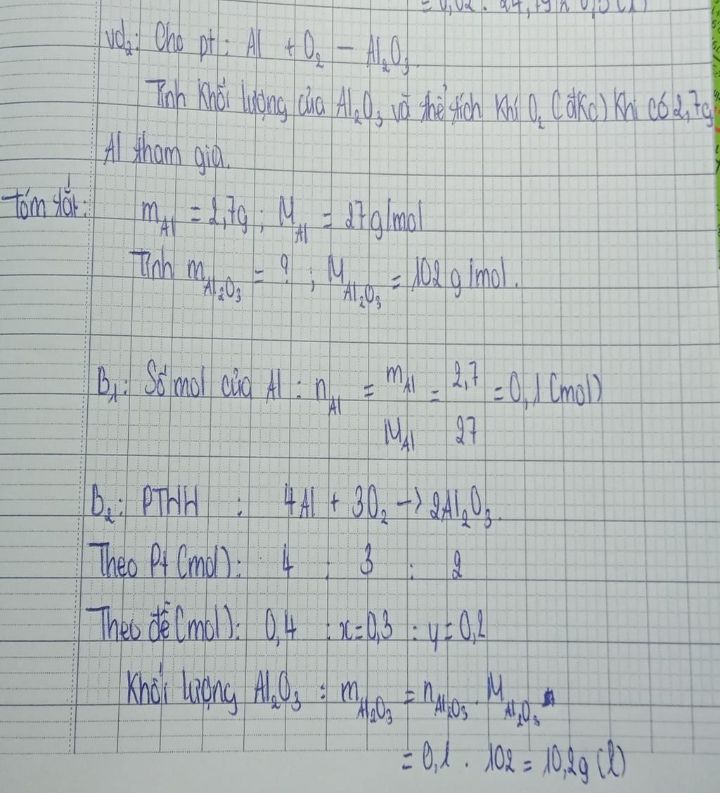 = 0,02 . 24,79 = 0,5 (l)
vd₂: Cho pt: Al + O₂ – Al₂O₃.
Tính Khối lượng của Al₂O₃ và thể tích Khí O₂ (đKc) Khi có 2,7g
Al tham gia.
Tóm tắt: m_Al = 2,7g ; M_Al = 27g/mol
Tính m_Al₂O₃ = ? ; M_Al₂O₃ = 102 g/mol.
B₁: Số mol của Al : n_Al = m_Al/M_Al = 2,7/27 = 0,1 (mol)
B₂: PTHH : 4Al + 3O₂ -> 2Al₂O₃.
Theo Pt (mol): 4 : 3 : 2
Theo đề (mol): 0,4 : x=0,3 : y=0,2
Khối lượng Al₂O₃ : m_Al₂O₃ = n_Al₂O₃ . M_Al₂O₃
= 0,1 . 102 = 10,2g (l)